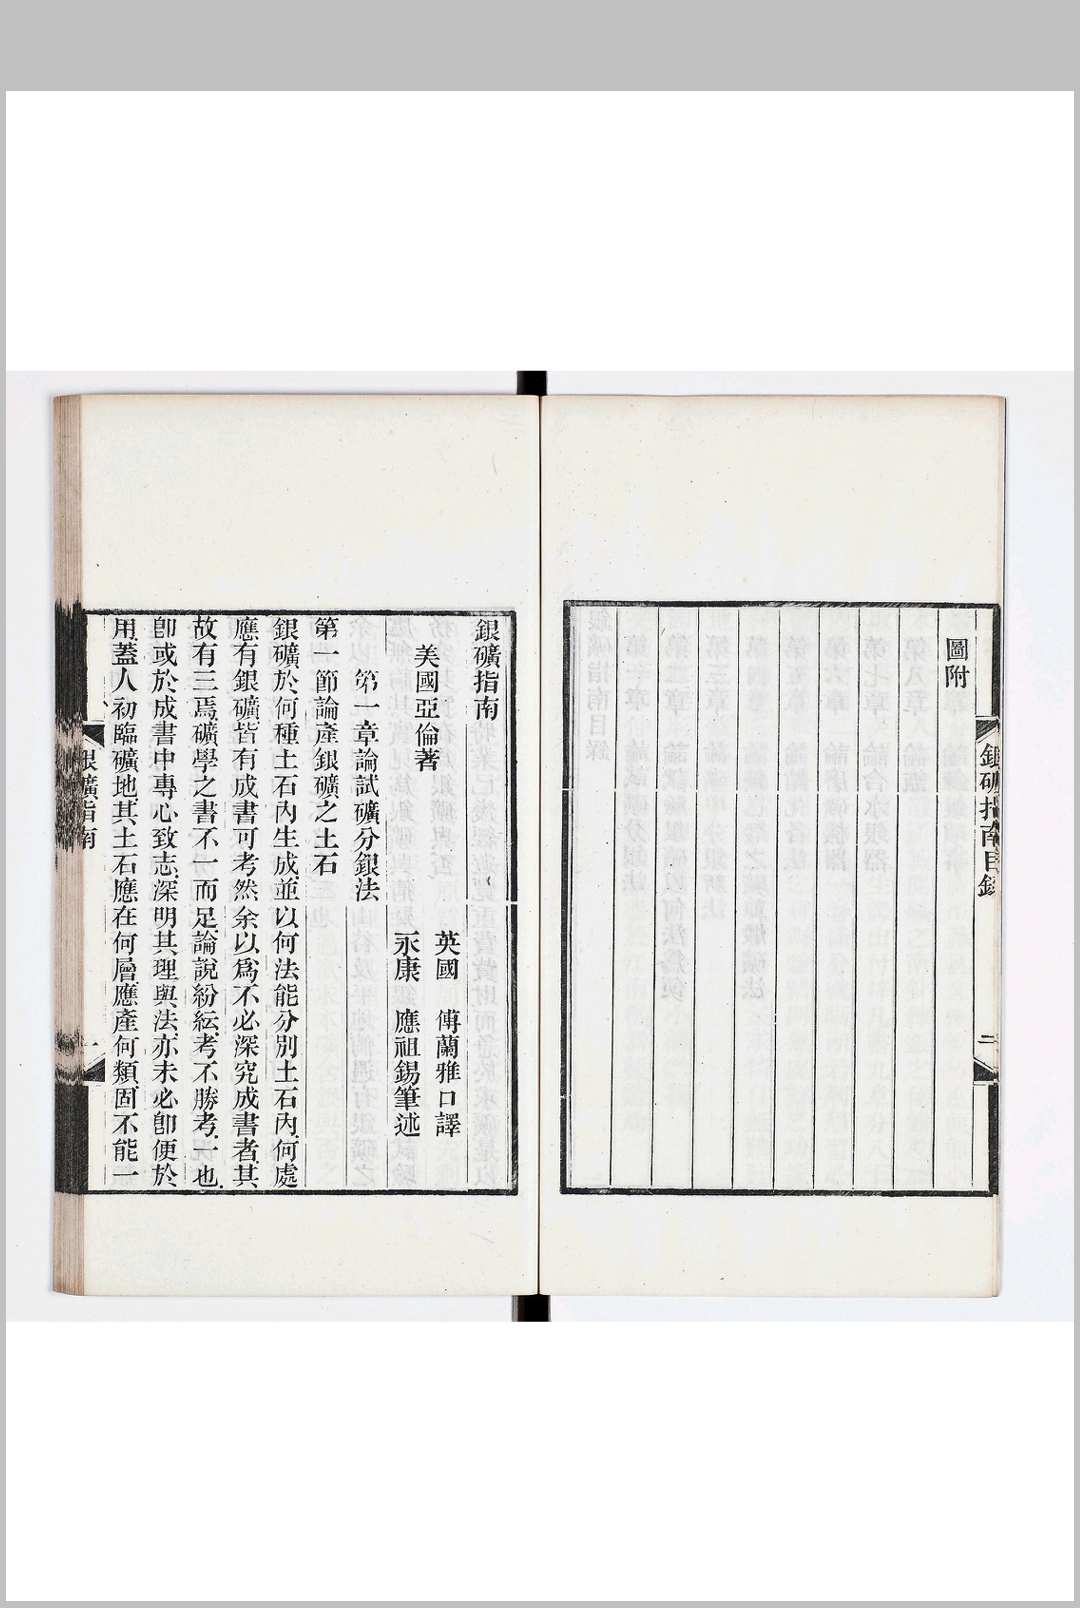 圖附
銀礦指南目錄
二
銀礦指南
美國亞倫著
英國　傅蘭雅口譯
永康　應祖錫筆述
第一章論試礦分銀法
第一節論產銀礦之土石
銀礦於何種土石內生成、並以何法能分別土石內、何處
應有銀礦、皆有成書可考、然余以爲不必深究成書者、其
故有三焉、礦學之書不一而足、論說紛紜、考不勝考、一也、
卽或於成書中專心致志、深明其理與法、亦未必卽便於
用、蓋人初臨礦地、其土石應在何層、應產何類、固不能一
銀礦指南
一